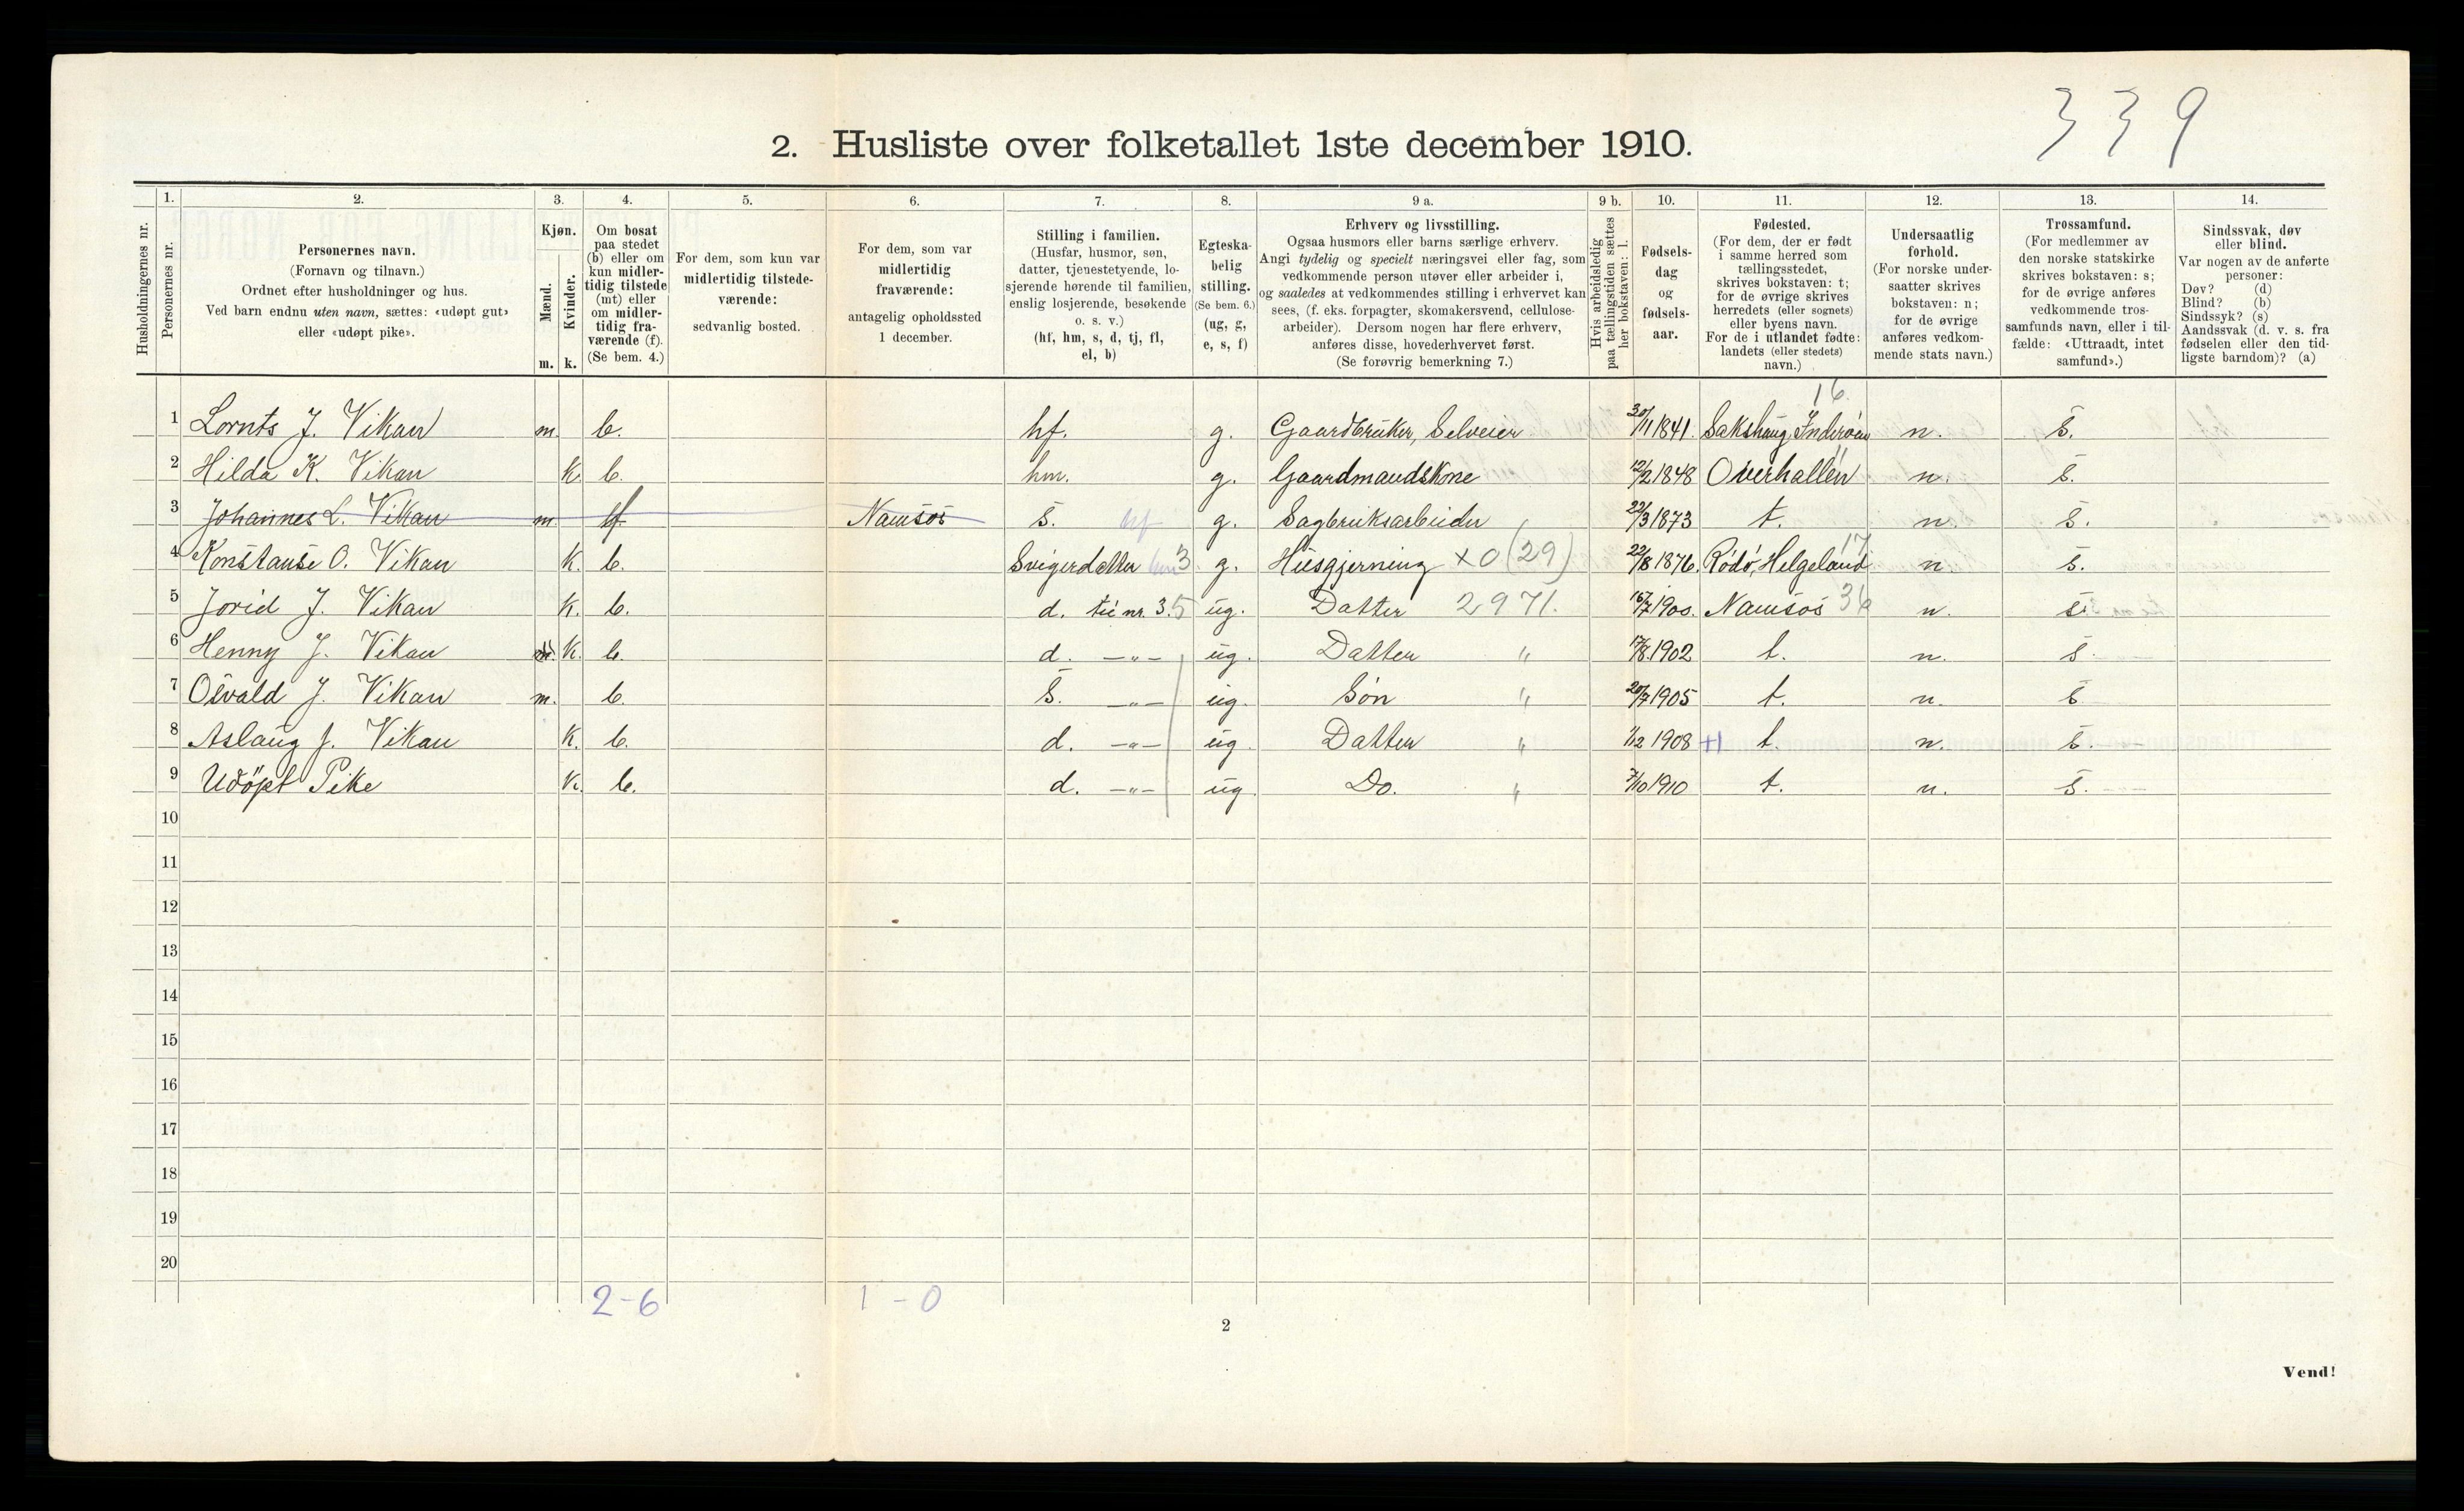 339
2. Husliste over folketallet 1ste december 1910.
Husholdningernes nr.
1. Personernes nr.
2. Personernes navn. (Fornavn og tilnavn.) Ordnet efter husholdninger og hus. Ved barn endnu uten navn, sættes: «udøpt gut» eller «udøpt pike».
3. Kjøn. Mænd. m. Kvinder. k.
4. Om bosat paa stedet (b) eller om kun midlertidig tilstede (mt) eller om midlertidig fraværende (f). (Se bem. 4.)
5. For dem, som kun var midlertidig tilstedeværende: sedvanlig bosted.
6. For dem, som var midlertidig fraværende: antagelig opholdssted 1 december.
7. Stilling i familien. (Husfar, husmor, søn, datter, tjenestetyende, losjerende hørende til familien, enslig losjerende, besøkende o. s. v.) (hf, hm, s, d, tj, fl, el, b)
8. Egteskabelig stilling. (Se bem. 6.) (ug, g, e, s, f)
9 a. Erhverv og livsstilling. Ogsaa husmors eller barns særlige erhverv. Angi tydelig og specielt næringsvei eller fag, som vedkommende person utøver eller arbeider i, og saaledes at vedkommendes stilling i erhvervet kan sees, (f. eks. forpagter, skomakersvend, cellulosearbeider). Dersom nogen har flere erhverv, anføres disse, hovederhvervet først. (Se forøvrig bemerkning 7.)
9 b. Hvis arbeidsledig paa tællingstiden sættes her bokstaven: l.
10. Fødselsdag og fødselsaar.
11. Fødested. (For dem, der er født i samme herred som tællingsstedet, skrives bokstaven: t; for de øvrige skrives herredets (eller sognets) eller byens navn. For de i utlandet fødte: landets (eller stedets) navn.)
12. Undersaatlig forhold. (For norske undersaatter skrives bokstaven: n; for de øvrige anføres vedkommende stats navn.)
13. Trossamfund. (For medlemmer av den norske statskirke skrives bokstaven: s; for de øvrige anføres vedkommende trossamfunds navn, eller i tilfælde: «Uttraadt, intet samfund».)
14. Sindssvak, døv eller blind. Var nogen av de anførte personer: Døv? (d) Blind? (b) Sindssyk? (s) Aandssvak (d. v. s. fra fødselen eller den tidligste barndom)? (a)
16.
1 Lornts J. Vikan m. b. hf. g. Gaardbruker, Selveier 30/11 1841. Sakshaug, Inderøen n. s.
2 Hilda K. Vikan k. b. hm. g. Gaardmandskone 12/2 1848 Overhallen n. s.
3 Johannes L. Vikan m. f Namsos s. hf g. Sagbruksarbeider 22/3 1873 t. n. s.
4 Konstanse O. Vikan k. b. Svigerdatter hm 3 g. Husgjerning x0 (29) 22/8 1876. Rødø, Helgeland 17 n. s.
5 Jorid J. Vikan k. b. d. til nr. 3. 5 ug. Datter 2971. 16/7 1900. Namsos 36 n. s.
6 Henny J. Vikan k. b. d. —"— ug. Datter " 17/8 1902 t. n. s.
7 Osvald J. Vikan m. b. s. —"— ug. Søn " 20/7 1905 t. n. s.
8 Aslaug J. Vikan k. b. d. —"— ug. Datter " 1/12 1908 +1 t. n. s.
9 Udöpt Pike k. b. d. —"— ug Do. " 7/10 1910 t. n. s.
10
11
12
13
14
15
16
17
18
19
20
2-6 1-0
2
Vend!